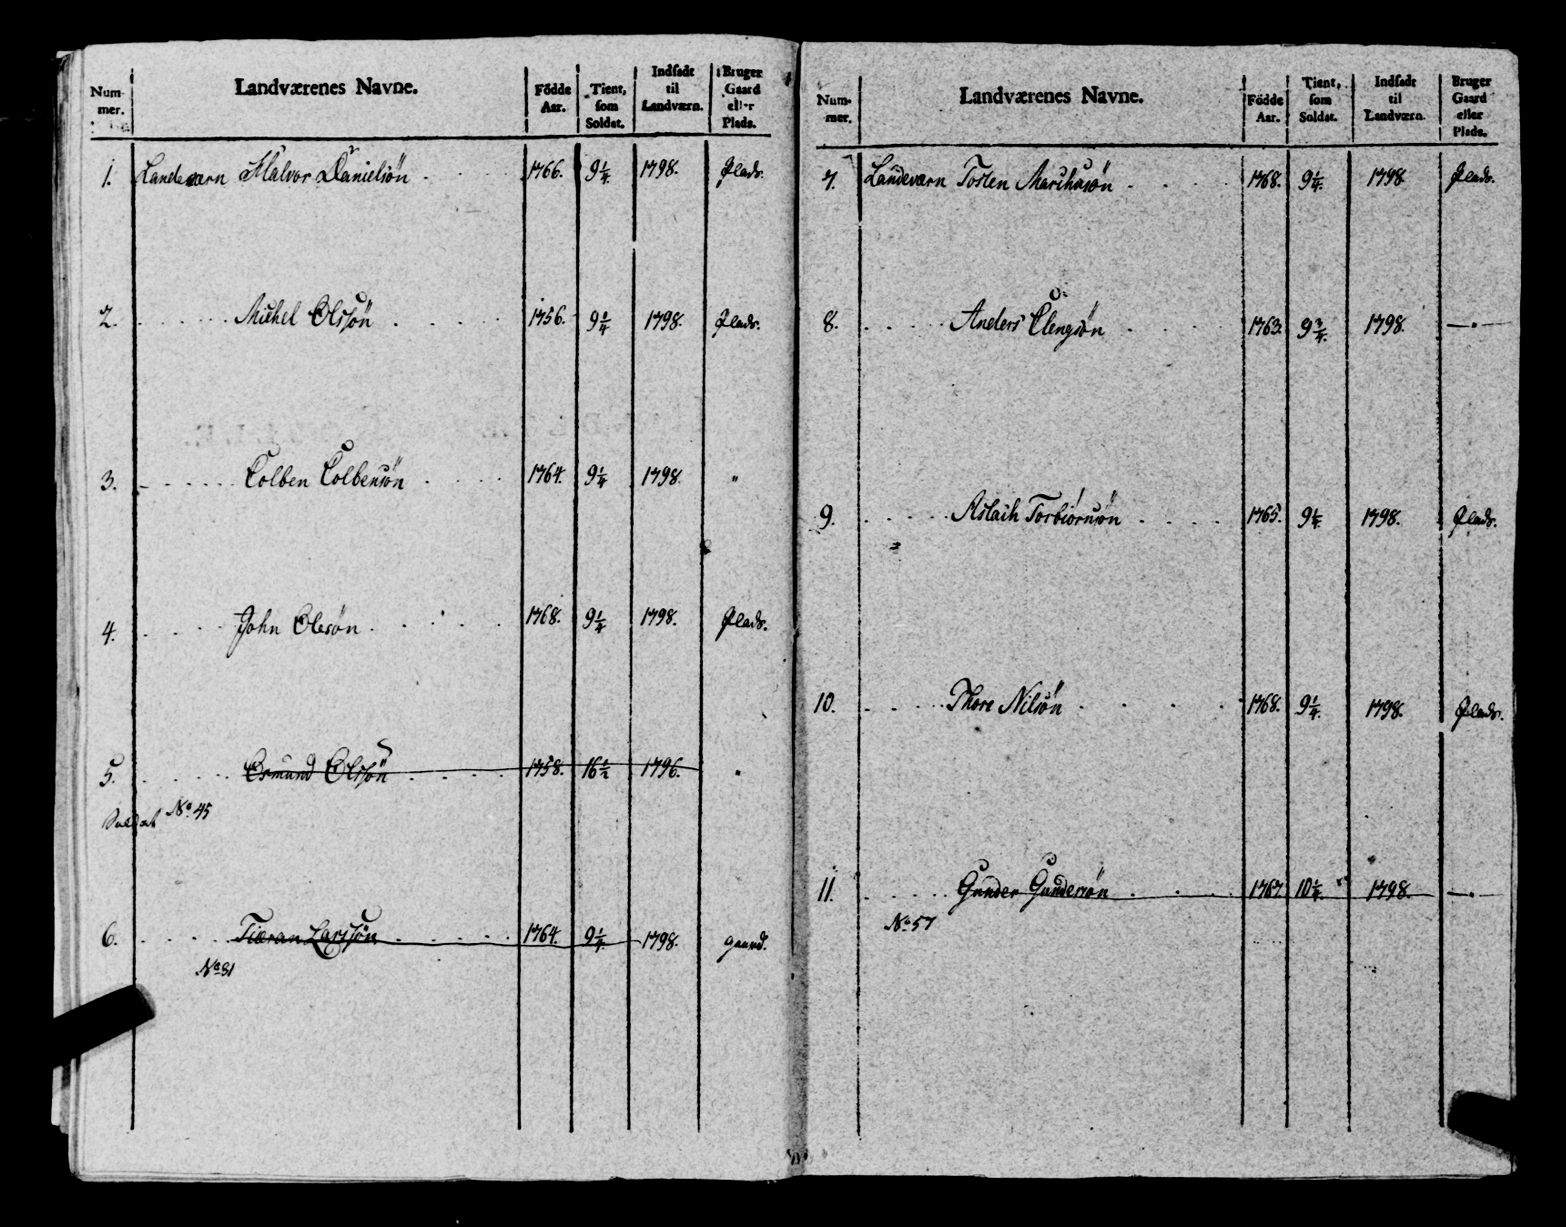 Num-mer. Landværenes Navne. Födde Aar. Tient, som Soldat. Indsadt til Landværn. Bruger Gaard eller Plads.
1. Landeværn Halvor Danielsön 1766. 9 1/4 1798. Plads.
2. Michel Olssön 1756. 9 1/4 1798. Plads.
3. Tolben Tolbensön 1764. 9 1/4 1798. "
4. John Olesön 1768. 9 1/4 1798. Plads.
5. Osmund Olssön 1758. 16 1/2 1796. "
Soldat No. 45
6. Tieran Larssön 1764. 9 1/4 1798. gaard.
No 81
Num-mer. Landværenes Navne. Födde Aar. Tient, som Soldat. Indsadt til Landværn. Bruger Gaard eller Plads.
7. Landeværn Tosten Marchusön 1768. 9 1/4. 1798 Plads.
8. Anders 1763. 9 3/4. 1798. —"—
9. Aslach Torbiörnsön 1765. 9 1/4 1798. Plads.
10. Thore Nilsön 1768. 9 1/4. 1798. Plads.
11. Gunder Gundersön 1767. 10 1/4. 1798. —"—
No. 57